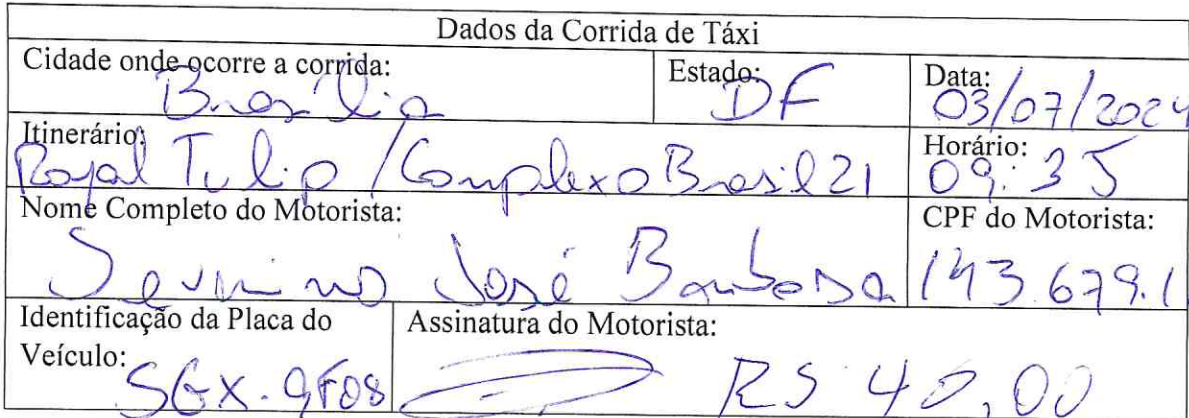 Dados da Corrida de Táxi
Cidade onde ocorre a corrida: Brasília
Estado: DF
Data: 03/07/2024
Itinerário: Royal Tulip / Complexo Brasil 21
Horário: 09:35
Nome Completo do Motorista: Severino José Barbosa
CPF do Motorista: 143.679.1
Identificação da Placa do
Veículo: SGX-9F08
Assinatura do Motorista:
R$ 40,00